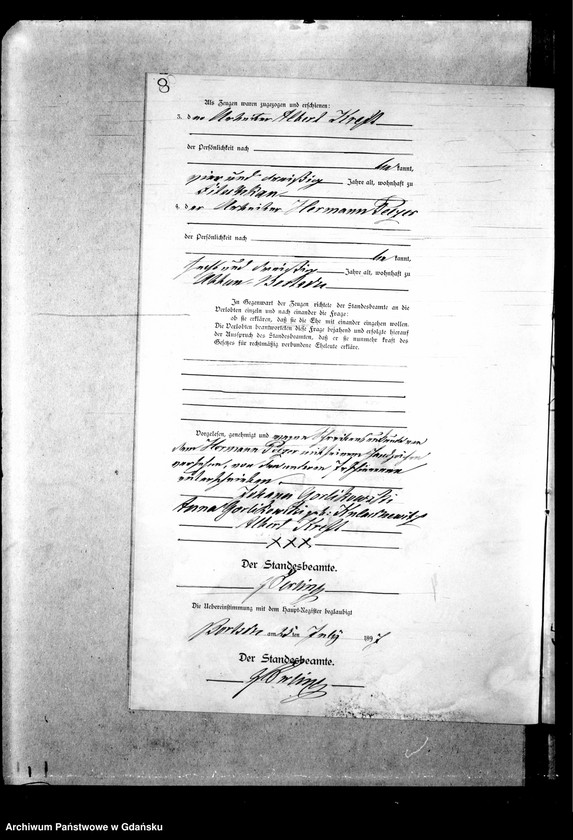 8
Als Zeugen waren zugezogen und erschienen:
3. der Arbeiter Albert Kreft
der Persönlichkeit nach
be kannt,
vier und dreißig Jahre alt, wohnhaft zu
4. der Arbeiter Hermann
der Persönlichkeit nach
be kannt,
sechs und dreißig Jahre alt, wohnhaft zu
In Gegenwart der Zeugen richtete der Standesbeamte an die
Verlobten einzeln und nach einander die Frage:
ob sie erklären, daß sie die Ehe mit einander eingehen wollen.
Die Verlobten beantworteten diese Frage bejahend und erfolgte hierauf
der Ausspruch des Standesbeamten, daß er sie nunmehr kraft des
Gesetzes für rechtmäßig verbundene Eheleute erkläre.
Vorgelesen, genehmigt und wegen Schreibensunkunde von
dem Hermann mit seinem Handzeichen
versehen, von den anderen Erschienenen
unterschrieben.
Johann Gorlikowski
Anna Gorlikowski geb:
Albert Kreft
XXX
Der Standesbeamte.
Die Uebereinstimmung mit dem Haupt-Register beglaubigt
am ten July 1897
Der Standesbeamte.
Archiwum Państwowe w Gdańsku